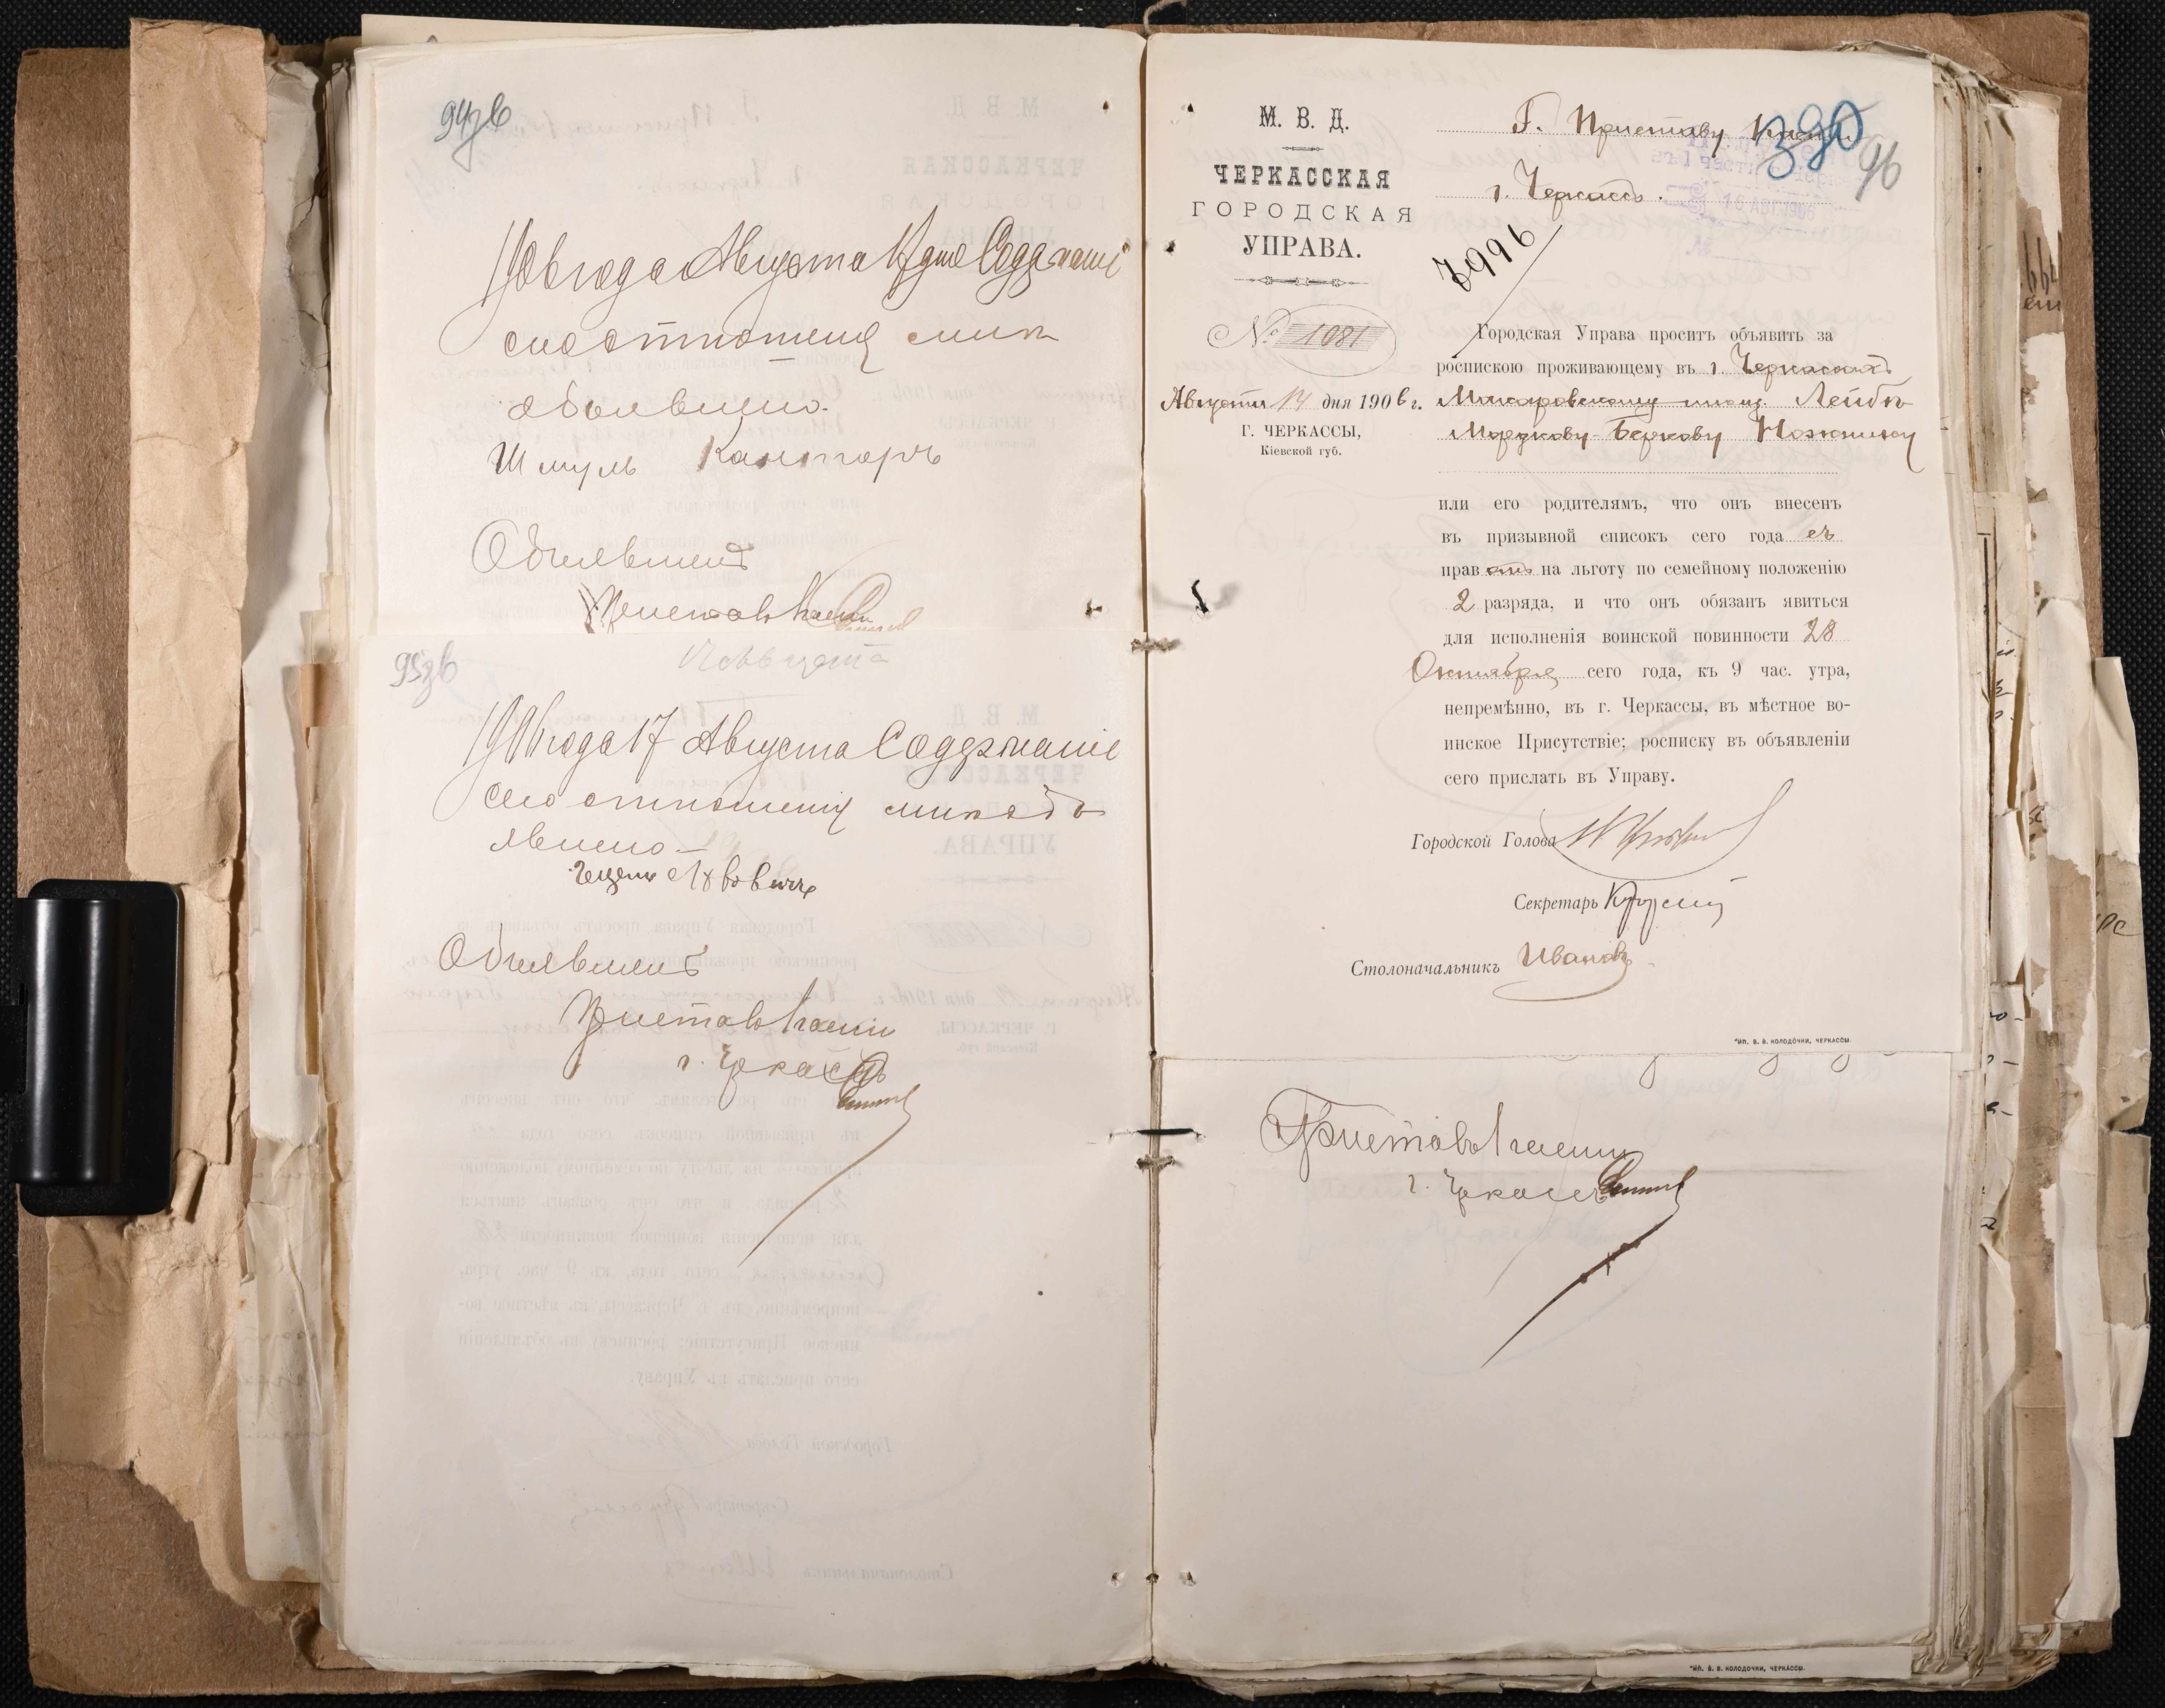 94зв
1906 года Августа 17 дня Содержаніе
сего отношенія мнѣ
объявлено.
Шмуль Канторъ
Объявленъ
Приставъ
95зв
1906 года 17 Августа Содержаніе
сего отношенія мнѣ объ
явлено
Объявленъ
Приставъ
г. Черкассъ
М. В. Д.
ЧЕРКАССКАЯ
ГОРОДСКАЯ
УПРАВА.
№ 1081
Августа 14 дня 1906 г.
Г. ЧЕРКАССЫ,
Кіевской губ.
Г. Приставу
г. Черкассъ.
96
16 АВГ. 1906
№
7996
Городская Управа проситъ объявить за
роспискою проживающему въ г. Черкассахъ
Макаровскому мѣщ. Лейбѣ
Мордкову-Беркову
или его родителямъ, что онъ внесенъ
въ призывной списокъ сего года съ
прав омъ на льготу по семейному положенію
2 разряда, и что онъ обязанъ явиться
для исполненія воинской повинности 28
Октября сего года, къ 9 час. утра,
непремѣнно, въ г. Черкассы, въ мѣстное во-
инское Присутствіе; росписку въ объявленіи
сего прислать въ Управу.
Городской Голова
Секретарь
Столоначальникъ Ивановъ
ТИП. В. В. КОЛОДОЧКИ, ЧЕРКАССЫ.
Приставъ
г. Черкассъ
ТИП. В. В. КОЛОДОЧКИ, ЧЕРКАССЫ.